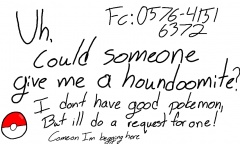 Uh,
Fc: 0576-4151
6372
Could someone
give me a houndoomite?
I dont have good pokemon,
But ill do a request for one!
Comeon I'm begging here